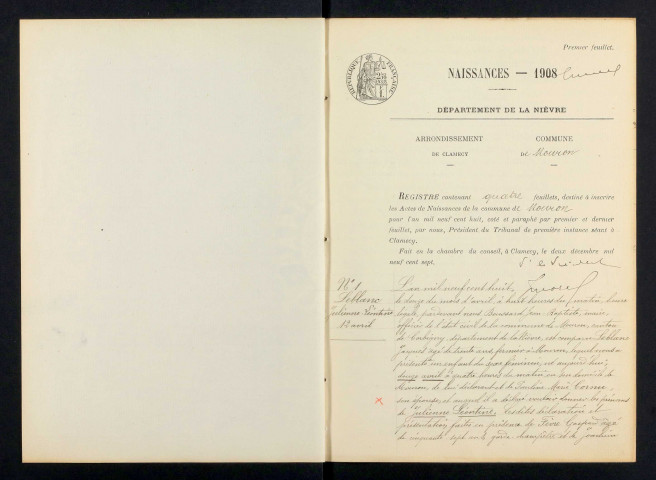 Premier feuillet.
RÉPUBLIQUE FRANÇAISE
NAISSANCES — 1908
DÉPARTEMENT DE LA NIÈVRE
ARRONDISSEMENT
DE CLAMECY
COMMUNE
DE Mouron
REGISTRE contenant quatre feuillets, destiné à inscrire
les Actes de Naissances de la commune de Mouron
pour l'an mil neuf cent huit, coté et paraphé par premier et dernier
feuillet, par nous, Président du Tribunal de première instance séant à
Clamecy.
Fait en la chambre du conseil, à Clamecy, le deux décembre mil
neuf cent sept.
N° 1
Leblanc
12 avril
L'an mil neuf cent huit,
le douze du mois d'avril à huit heures du matin, heure
légale, pardevant nous Boussard Jean Baptiste, maire
officier de l'état civil de la commune de Mouron, canton
de Corbigny, département de la Nièvre, est comparu Leblanc
Jacques âgé de trente ans, fermier à Mouron, lequel nous a
présenté un enfant du sexe féminin, né aujourd'hui
douze avril à quatre heures du matin en son domicile à
Mouron, de lui déclarant et de Pauline Marie
son épouse, et auquel il a déclaré vouloir donner les prénoms
de Julienne Les dites déclaration et
présentation faites en présence de Fèvre Gaspard âgé
de cinquante sept ans, garde champêtre et de